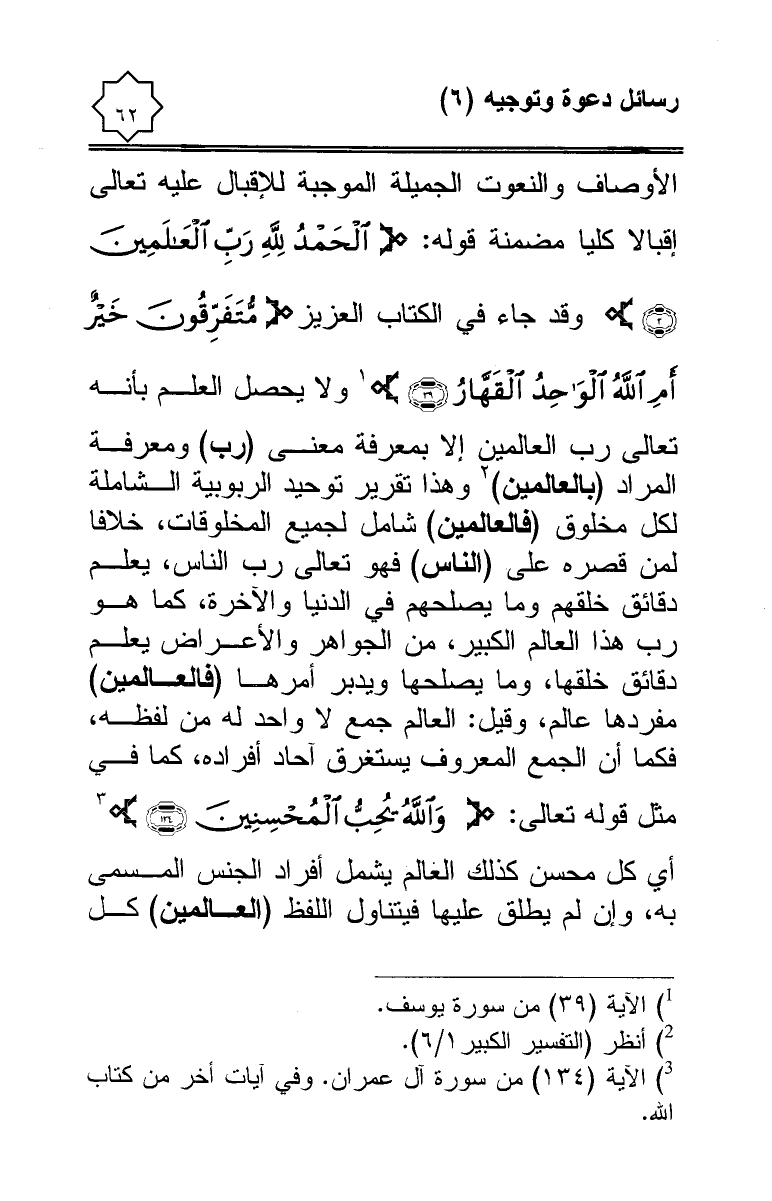 رسائل دعوة وتوجيه (٦)
٦٢
الأوصاف والنعوت الجميلة الموجبة للإقبال عليه تعالى
إقبالا كليا مضمنة قوله: ﴿ ٱلْحَمْدُ لِلَّهِ رَبِّ ٱلْعَـٰلَمِينَ
٢ ﴾ وقد جاء في الكتاب العزيز ﴿ مُّتَفَرِّقُونَ خَيْرٌ
أَمِ ٱللَّهُ ٱلْوَٰحِدُ ٱلْقَهَّارُ ٣٩ ﴾١ ولا يحصل العلـم بأنـه
تعالى رب العالمين إلا بمعرفة معنـى (رب) ومعرفـة
المراد (بالعالمين)٢ وهذا تقرير توحيد الربوبية الـشاملة
لكل مخلوق (فالعالمين) شامل لجميع المخلوقات، خلافا
لمن قصره على (الناس) فهو تعالى رب الناس، يعلـم
دقائق خلقهم وما يصلحهم في الدنيا والآخرة، كما هـو
رب هذا العالم الكبير، من الجواهر والأعـراض يعلـم
دقائق خلقها، وما يصلحها ويدبر أمرهـا (فالعـالمين)
مفردها عالم، وقيل: العالم جمع لا واحد له من لفظـه،
فكما أن الجمع المعروف يستغرق آحاد أفراده، كما فـي
مثل قوله تعالى: ﴿ وَٱللَّهُ يُحِبُّ ٱلْمُحْسِنِينَ ١٣٤ ﴾٣
أي كل محسن كذلك العالم يشمل أفراد الجنس المـسمى
به، وإن لم يطلق عليها فيتناول اللفظ (العـالمين) كـل
1) الآية (٣٩) من سورة يوسف.
2) أنظر (التفسير الكبير ٦/١).
3) الآية (١٣٤) من سورة آل عمران. وفي آيات أخر من كتاب
الله.